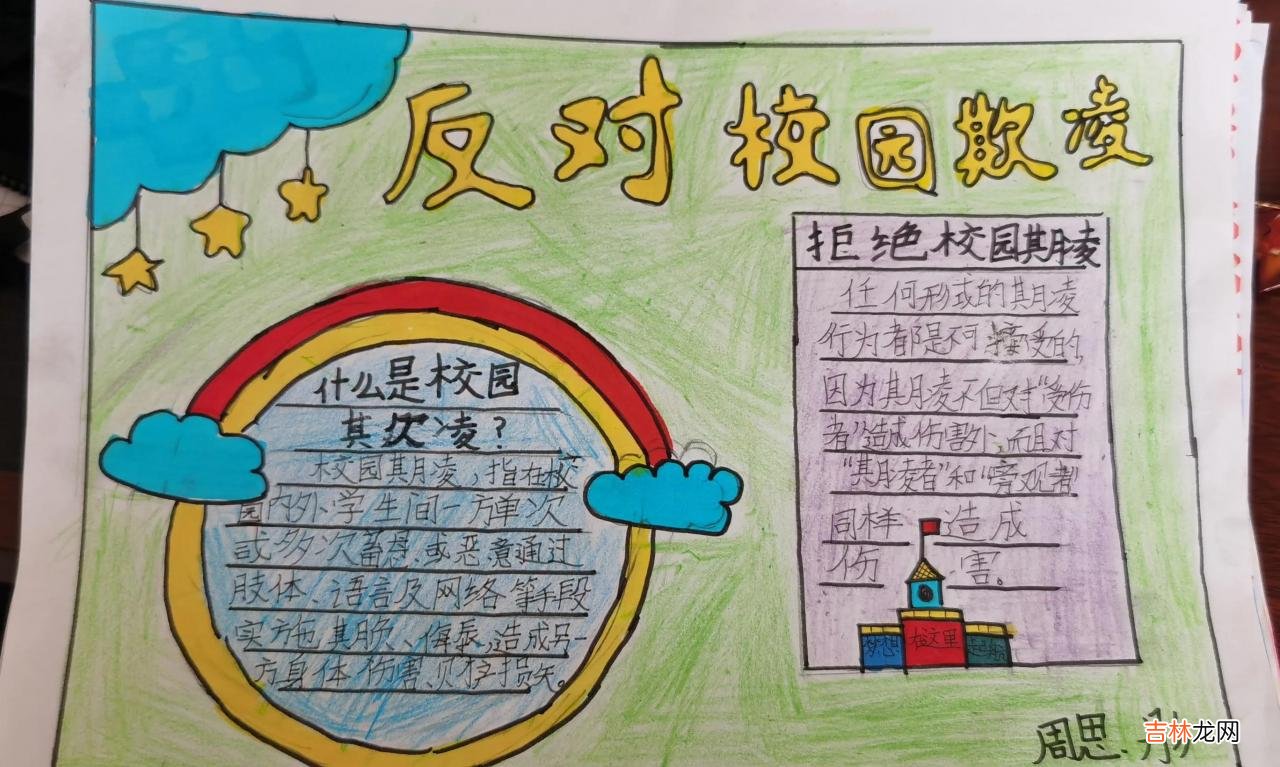 反对校园欺凌
什么是校园
欺凌？
校园期凌，指在校
园内外、学生间一方单次
或多次蓄意、或恶意通过
肢体、语言及网络等手段
实施期负、侮辱，造成另一
方身体伤害、财产损失。
拒绝校园期凌
任何形式的期凌
行为都是不可接受的，
因为期凌不但对“受伤
者”造成伤害外、而且对
“期凌者”和“旁观者
同样造成
伤害。
梦想 在这里 起航
周思
吉林龙网